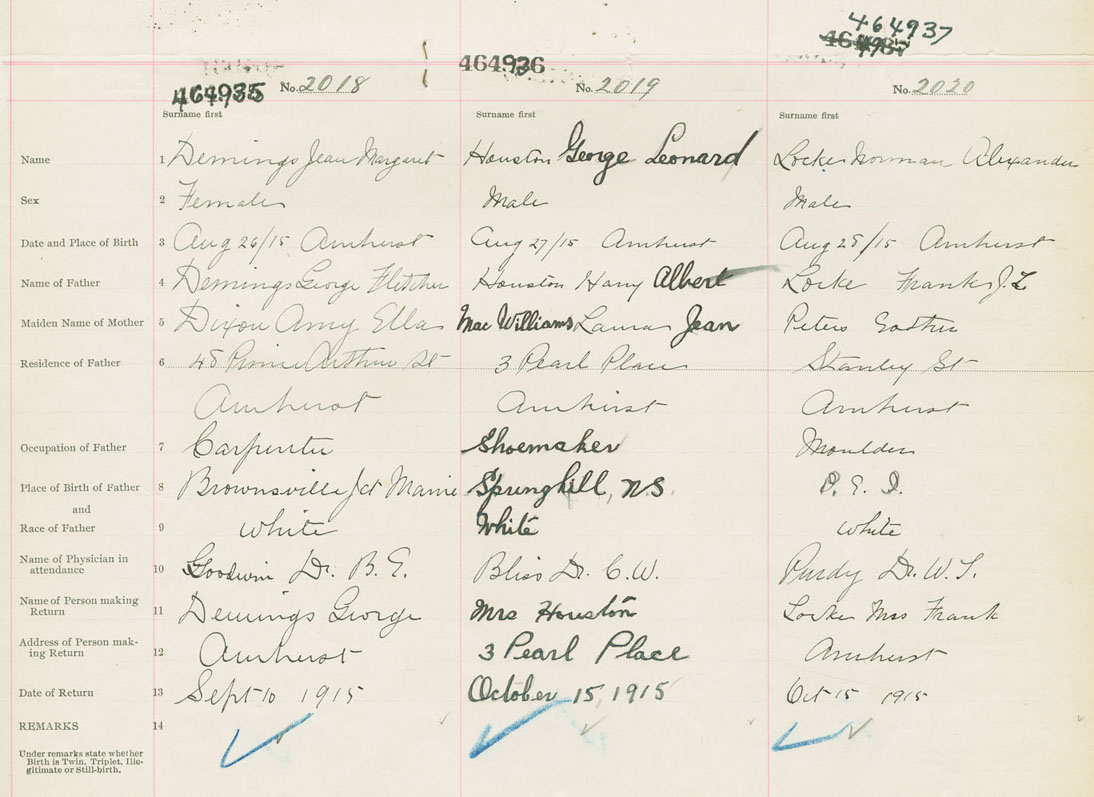 464937
464936
464935 No. 2018 No. 2019 No. 2020
Surname first Surname first Surname first
Name 1 Demings Jean Margaret Houston George Leonard Locke Norman Alexander
Sex 2 Female Male Male
Date and Place of Birth 3 Aug 26/15 Amherst Aug 27/15 Amherst Aug 28/15 Amherst
Name of Father 4 Demings George Fletcher Houston Harry Albert Locke Frank J. L
Maiden Name of Mother 5 Dixon Amy Ella Mac Williams Laura Jean Peters
Residence of Father 6 48 Prince Arthur St 3 Pearl Place Stanley St
Amherst Amherst Amherst
Occupation of Father 7 Carpenter Shoemaker Moulder
Place of Birth of Father 8 Brownsville Jct Maine Springhill, N.S. P. E. I.
and
Race of Father 9 White White White
Name of Physician in
attendance 10 Goodwin Dr. B. E. Bliss Dr. C. W. Purdy Dr. W. T.
Name of Person making
Return 11 Demings George Mrs Houston Locke Mrs Frank
Address of Person mak-
ing Return 12 Amherst 3 Pearl Place Amherst
Date of Return 13 Sept 10 1915 October 15, 1915 Oct 15 1915
REMARKS 14
Under remarks state whether
Birth is Twin, Triplet, Ille-
gitimate or Still-birth.